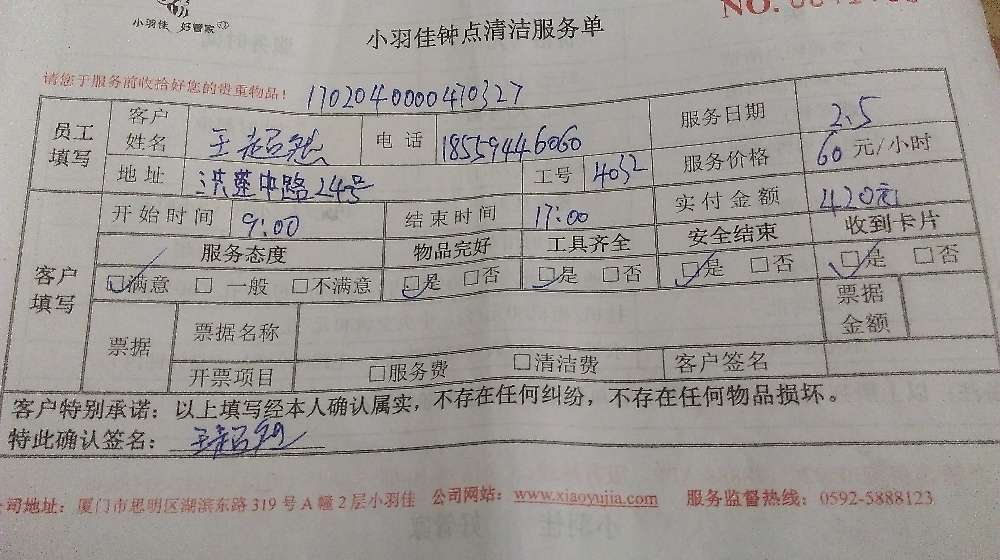 小羽佳 好管家
小羽佳钟点清洁服务单
NO.
请您于服务前收拾好您的贵重物品！ 1702040000470327
员工填写 客户姓名 王超 电话 18559446060 服务日期 2.5
地址 洪莲中路24号 工号 4032 服务价格 60元/小时
客户填写 开始时间 9:00 结束时间 17:00 实付金额 420元
服务态度 物品完好 工具齐全 安全结束 收到卡片
□满意 □一般 □不满意 □是 □否 □是 □否 □是 □否 □是 □否
票据 票据名称 票据金额
开票项目 □服务费 □清洁费 客户签名
客户特别承诺：以上填写经本人确认属实，不存在任何纠纷，不存在任何物品损坏。
特此确认签名： 王超
公司地址：厦门市思明区湖滨东路319号A幢2层小羽佳 公司网站：www.xiaoyujia.com 服务监督热线：0592-5888123